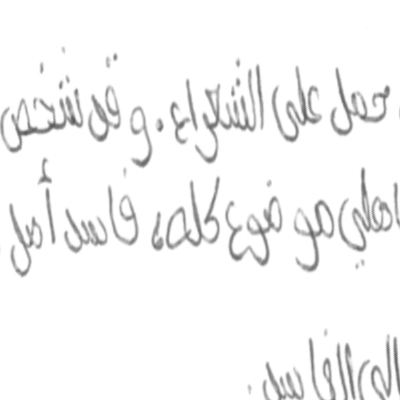 حمل على الشعراء. و قد شخص
اهلي موضوع كله، فاسد أصل
الى الفاسد.